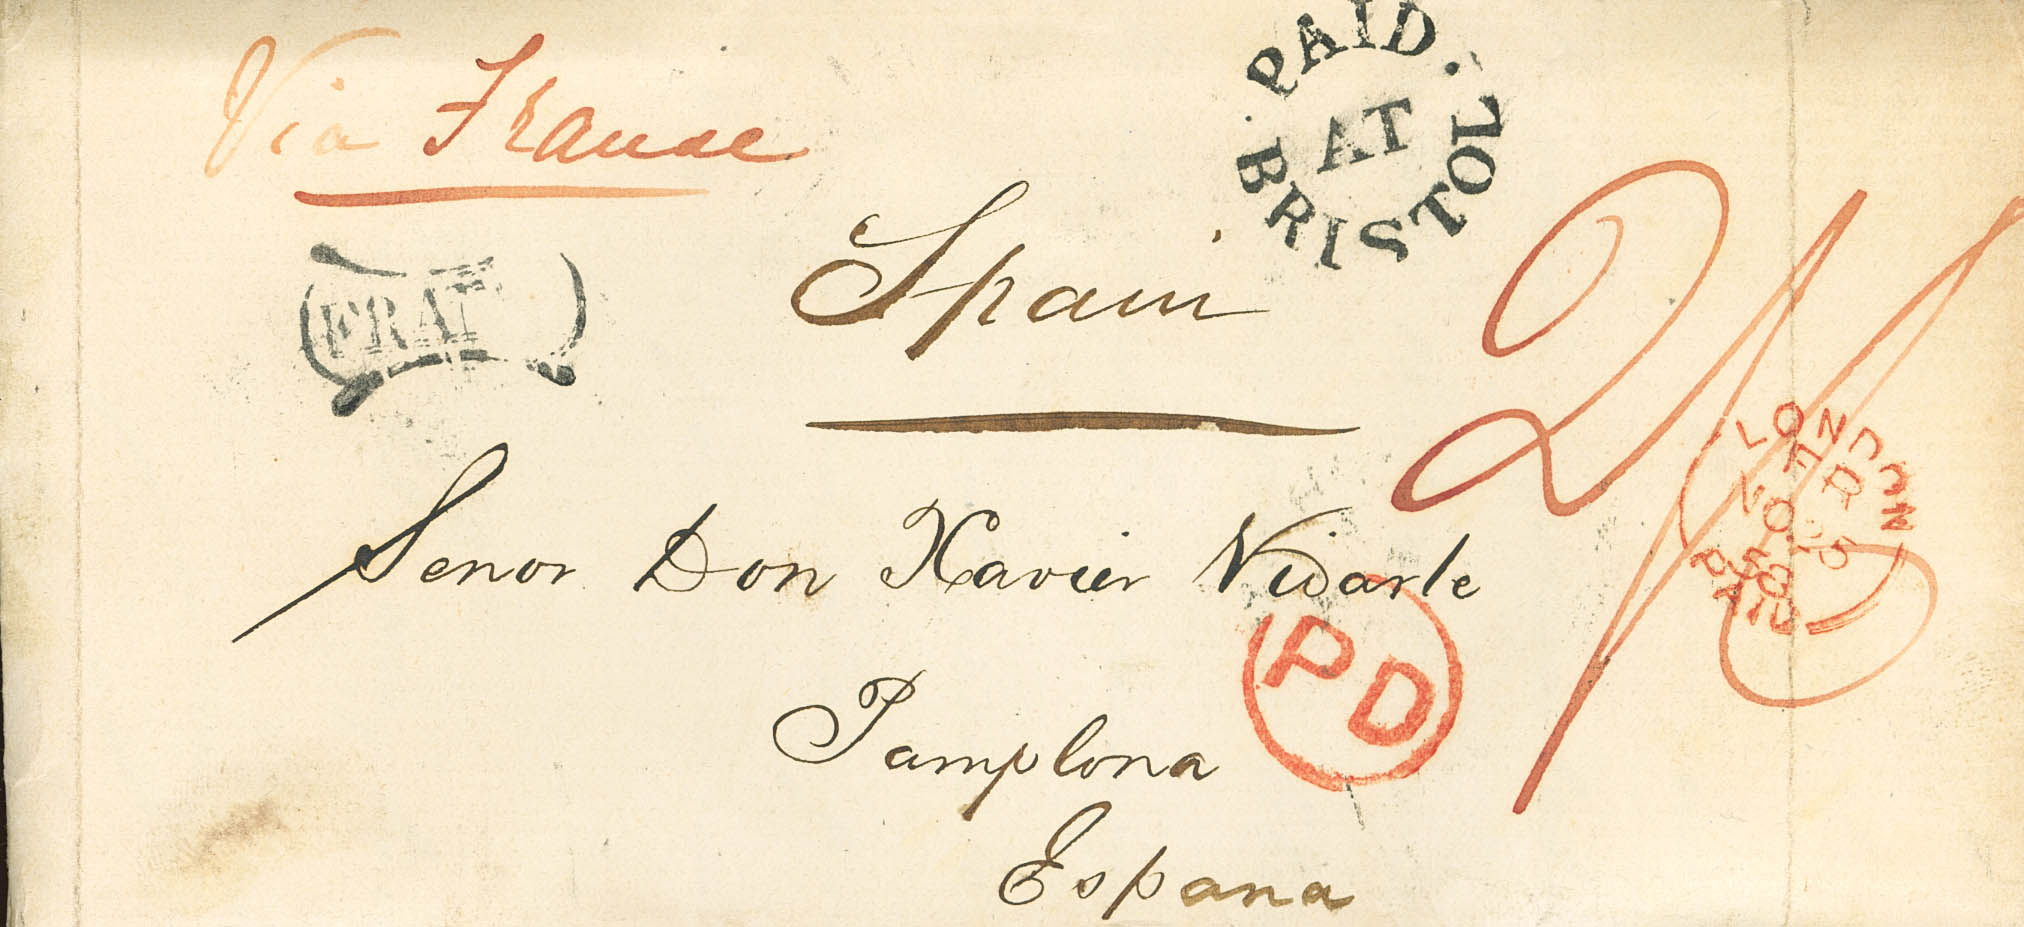 Via France
PAID AT BRISTOL
FRAN
Spain
2/
LONDON
PAID
Senor Don Xavier Vidarte
PD
Pamplona
Espana